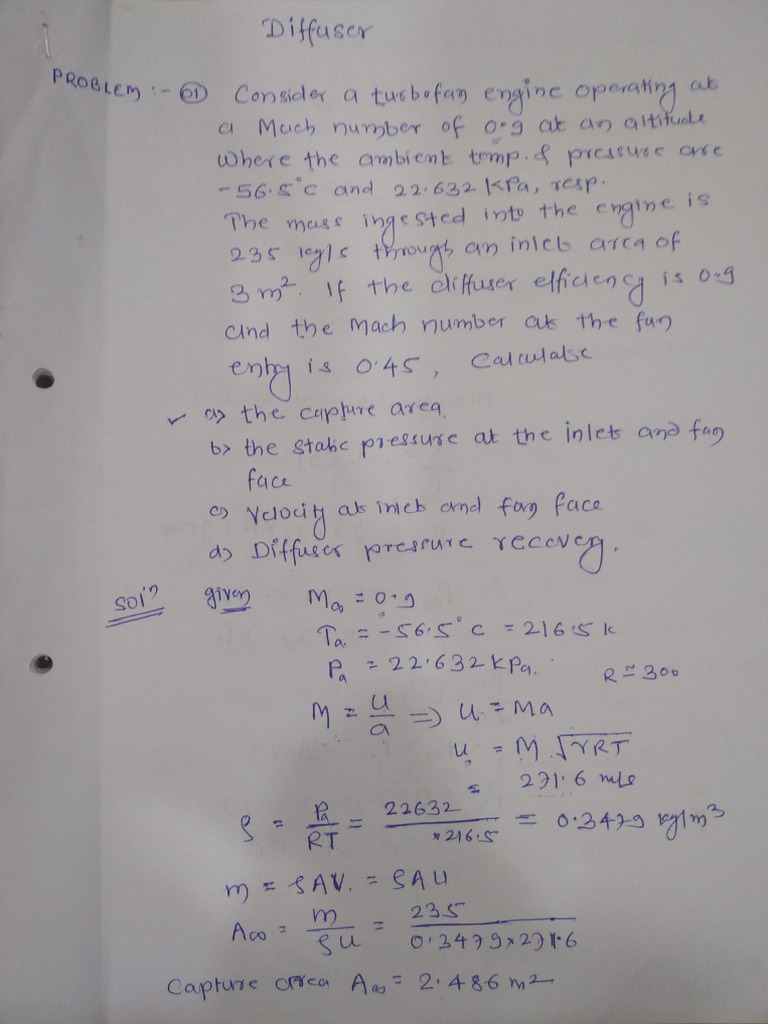 Diffuser
PROBLEM :- 01 Consider a turbofan engine operating at
a Mach number of 0.9 at an altitude
where the ambient temp. & pressure are
-56.5°c and 22.632 KPa, resp.
The mass ingested into the engine is
235 kg/s through an inlet area of
3 m². If the diffuser efficiency is 0.9
and the Mach number at the fan
entry is 0.45, Calculate
✓ a> the capture area.
b> the static pressure at the inlet and fan
face
c> Velocity at inlet and fan face
d> Diffuser pressure recovery.
Solⁿ given M∞ = 0.9
Ta = -56.5°c = 216.5 k
Pa = 22.632 KPa. R = 300
M = u/a => u = Ma
u = M √γRT
= 271.6 m/s
ρ = Pa/RT = 22632/×216.5 = 0.3479 kg/m³
m = ρAV. = ρAU
A∞ = m/ρu = 235/0.3479×271.6
Capture area A∞ = 2.486 m²